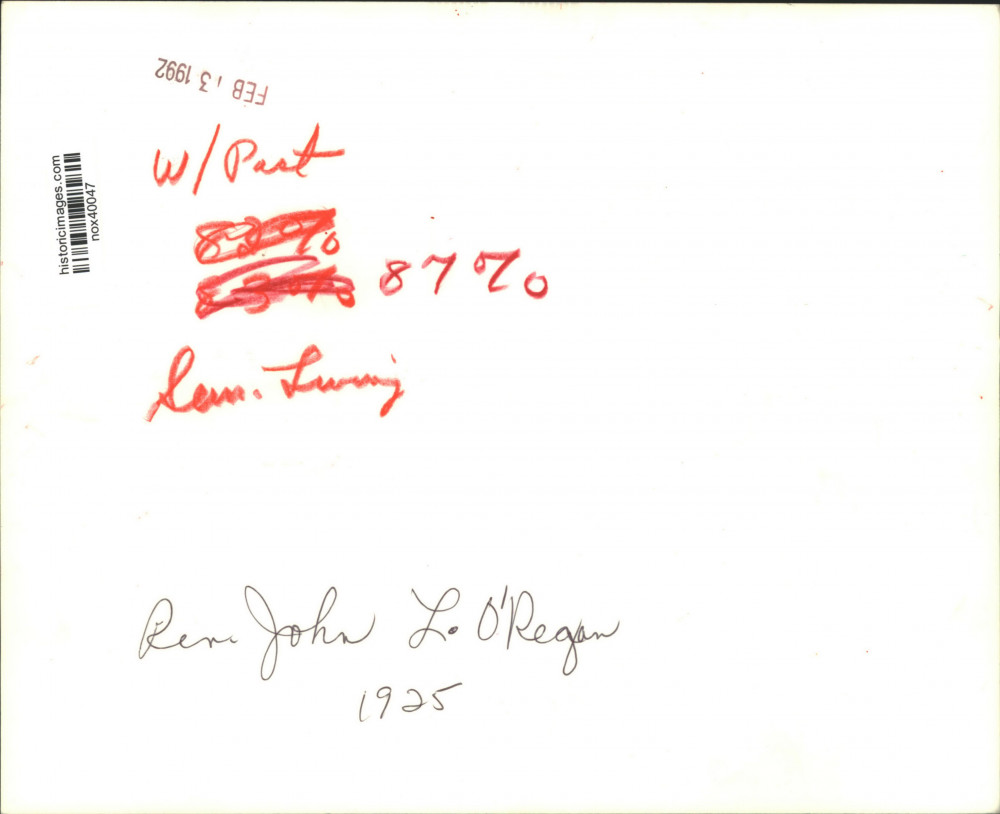 FEB 13 1992
historicimages.com
nox40047
W/Past
82%
83% 87%
Sun. Living
Rev. John L. O'Regan
1925